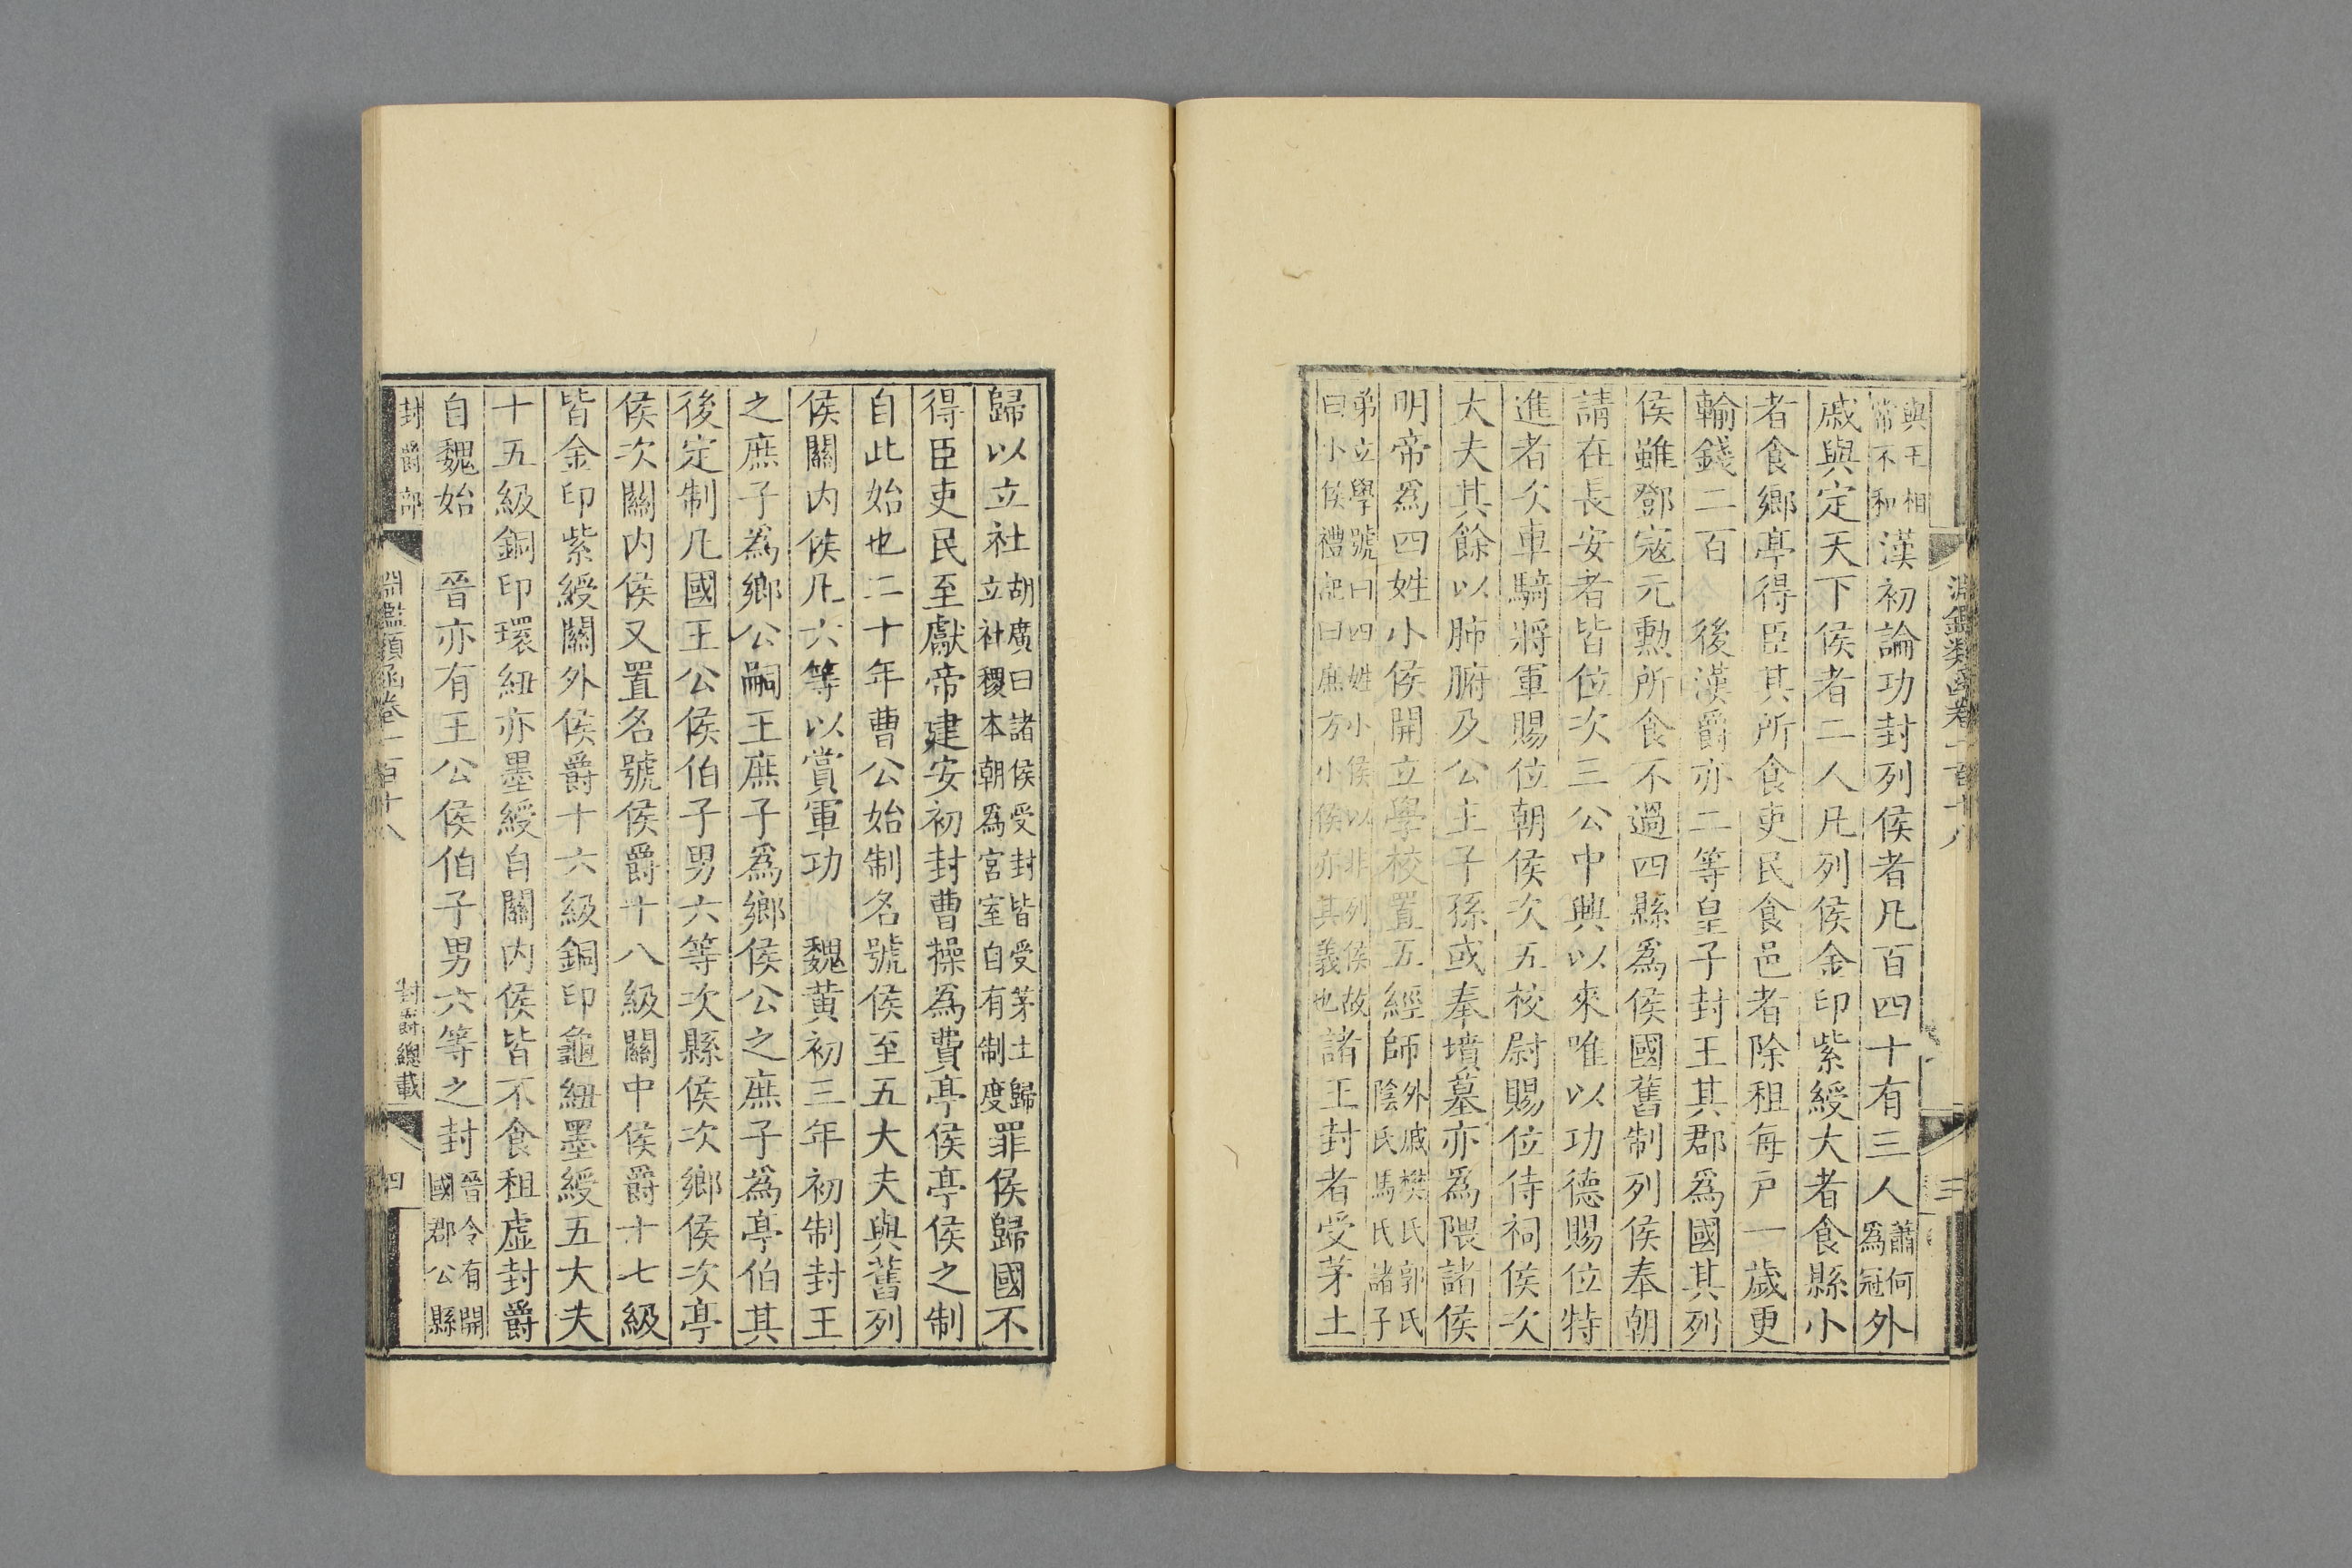 與王相
常不和漢初論功封列侯者凡百四十有三人蕭何為冠外
戚與定天下侯者二人凡列侯金印紫綬大者食縣小
者食鄉亭得臣其所食吏民食邑者除租每戶一歲更
輸錢二百 後漢爵亦二等皇子封王其郡為國其列
侯雖鄧寇元勳所食不過四縣為侯國舊制列侯奉朝
請在長安者皆位次三公中興以來唯以功德賜位特
進者次車騎將軍賜位朝侯次五校尉賜位侍祠侯次
大夫其餘以肺腑及公主子孫或奉墳墓亦為隈諸侯
明帝為四姓小侯開立學校置五經師外戚樊氏郭氏陰氏馬氏諸子
弟立學號曰四姓小侯以非列侯故曰小侯禮記曰庶方小侯亦其義也諸王封者受茅土
淵鑑類函卷一百十八
三
歸以立社胡廣曰諸侯受封皆受茅土歸立社稷本朝為宮室自有制度罪侯歸國不
得臣吏民至獻帝建安初封曹操為費亭侯亭侯之制
自此始也二十年曹公始制名號侯至五大夫與舊列
侯關內侯凡六等以賞軍功 魏黃初三年初制封王
之庶子為鄉公嗣王庶子為鄉侯公之庶子為亭伯其
後定制凡國王公侯伯子男六等次縣侯次鄉侯次亭
侯次關內侯又置名號侯爵十八級關中侯爵十七級
皆金印紫綬關外侯爵十六級銅印龜紐墨綬五大夫
十五級銅印環紐亦墨綬自關內侯皆不食租虛封爵
自魏始 晉亦有王公侯伯子男六等之封晉令有開國郡公縣
封爵部
淵鑑類函卷一百十八
封爵總載
四